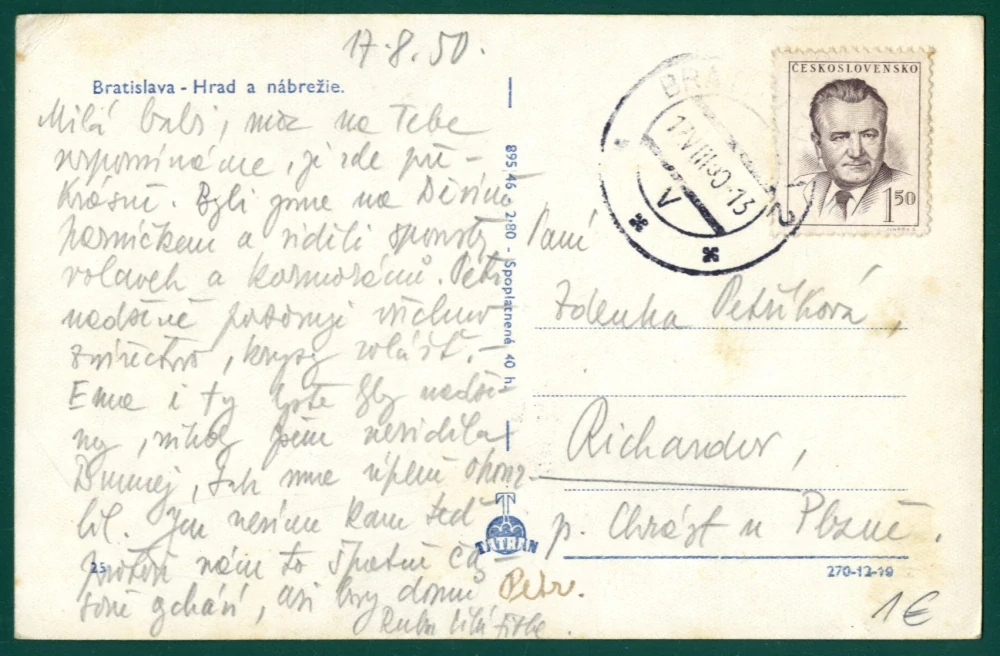 17.8.50.
Bratislava - Hrad a nábrežie.
Milá babi, na Tebe
vzpomínáme, je zde pře-
krásně. Byli jsme na Děvíně
parníčkem a viděli spousty
volavek a kormoránů. Petr
nadšeně pozoruje všechno
zvířectvo, krysy zvlášť. -
Ema i ty byste byly nadše-
ny, nikdy jsem neviděla
Dunaj, tak mne úplně okouz-
lil. Jen nevíme kam teď
protože nám to špatně ča-
sově vychází, asi brzy domů
Petr.
Ruku líbá
895/46 - 2.80 - Spoplatnené 40 h.
TATRAN
25
BRA
17.VIII.50-13
V
2
ČESKOSLOVENSKO
1 50
Paní
Zdenka Petříková,
Richandov,
p. Chrást u Plzně.
270-12-19
1€